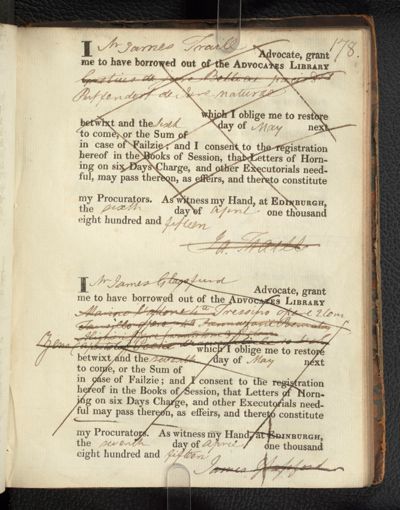 178.
I Mr James Traill Advocate, grant
me to have borrowed out of the ADVOCATES LIBRARY
Puffendorf de Jure naturae
which I oblige me to restore
betwixt and the sixth day of May next
to come, or the Sum of
in case of Failzie; and I consent to the registration
hereof in the Books of Session, that Letters of Horn-
ing on six Days Charge, and other Executorials need-
ful, may pass thereon, as effeirs, and thereto constitute
my Procurators. As witness my Hand, at EDINBURGH,
the sixth day of April one thousand
eight hundred and fifteen
Ja. Traill
I Mr James Glassfurd Advocate, grant
me to have borrowed out of the ADVOCATES LIBRARY
which I oblige me to restore
betwixt and the seventh day of May next
to come, or the Sum of
in case of Failzie; and I consent to the registration
hereof in the Books of Session, that Letters of Horn-
ing on six Days Charge, and other Executorials need-
ful may pass thereon, as effeirs, and thereto constitute
my Procurators. As witness my Hand, at EDINBURGH,
the seventh day of April one thousand
eight hundred and fifteen
James Glassfurd